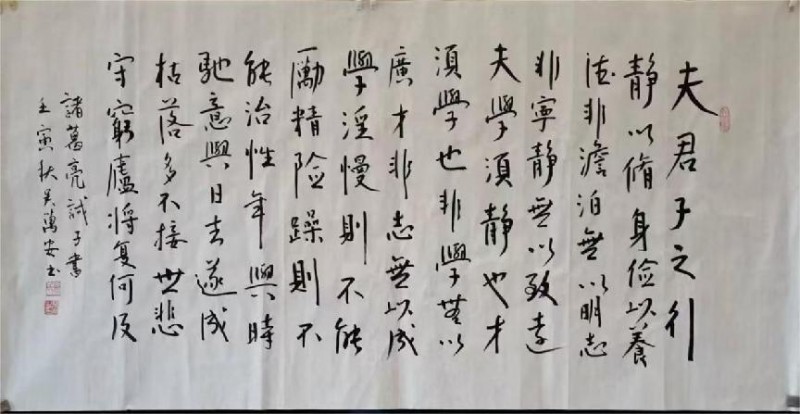 夫君子之行
静以脩身俭以養
德非澹泊無以明志
非寧静無以致遠
夫學須静也才
須學也非學無以
廣才非志無以成
學淫慢則不能
勵精险躁則不
能治性年與時
馳意與日去遂成
枯落多不接世悲
守窮廬将复何及
諸葛亮誡子書
壬寅秋吴萬安书